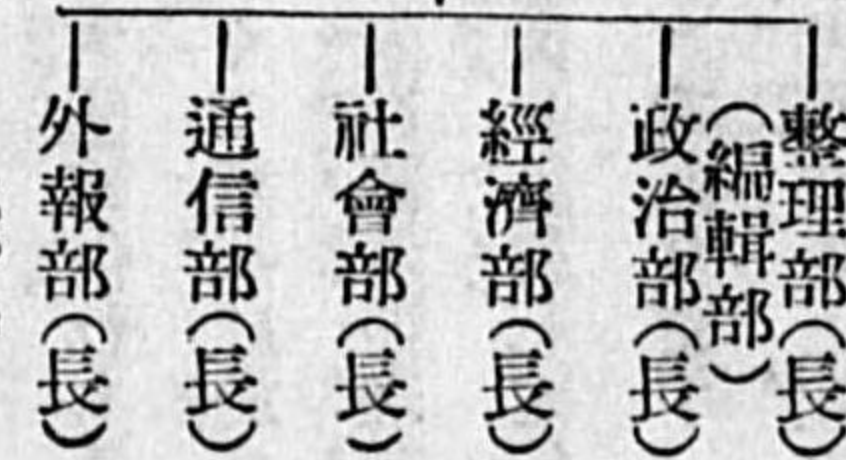 整理部(長)
(編輯部)
政治部(長)
經濟部(長)
社會部(長)
通信部(長)
外報部(長)